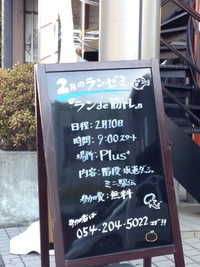 2月のランゼミ
"ランde筋トレ"
日程:2月10日
時間:9:00スタート
場所:Plus+
内容:階段 坂道ダッシュ
ミニ駅伝
参加費:無料
054-204-5022